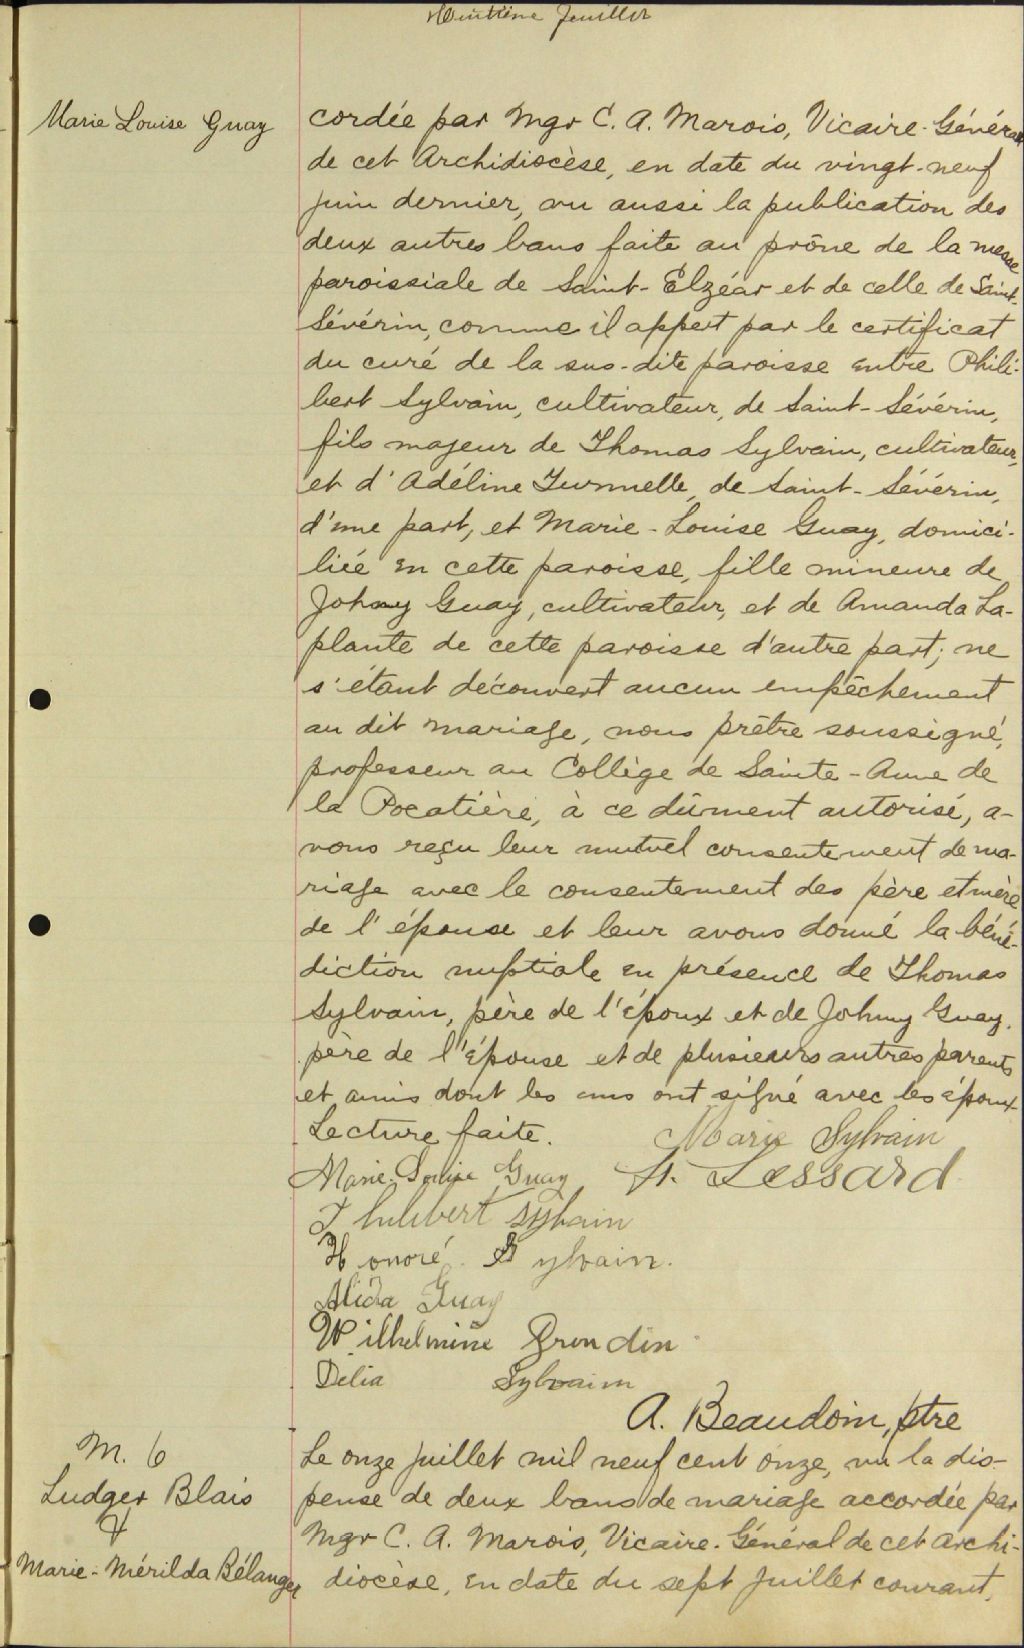 Huitième feuillet
Marie Louise Guay
cordée par Mgr C. A. Marois, Vicaire-Général
de cet Archidiocèse, en date du vingt-neuf
juin dernier, vu aussi la publication des
deux autres bans faite au prône de la messe
paroissiale de Saint-Elzéar et de celle de Saint-
Sévérin, comme il appert par le certificat
du curé de la sus-dite paroisse entre Phili-
bert Sylvain, cultivateur, de Saint-Sévérin,
fils majeur de Thomas Sylvain, cultivateur,
et d'Adéline Turmelle, de Saint-Sévérin,
d'une part, et Marie-Louise Guay, domici-
liée en cette paroisse, fille mineure de
Johnny Guay, cultivateur, et de Amanda La-
plante de cette paroisse d'autre part; ne
s'étant découvert aucun empêchement
au dit mariage, nous prêtre soussigné,
professeur au Collège de Sainte-Anne de
la Pocatière, à ce dûment autorisé, a-
vons reçu leur mutuel consentement de ma-
riage avec le consentement des père et mère
de l'épouse et leur avons donné la béné-
diction nuptiale en présence de Thomas
Sylvain, père de l'époux et de Johnny Guay,
père de l'épouse et de plusieurs autres parents
et amis dont les uns ont signé avec les époux.
Lecture faite. Marie Sylvain
Marie-Louise Guay H. Lessard
Philibert Sylvain
Honoré Sylvain.
Alida Guay
Wilhelmine Grondin
Délia Sylvain
A. Beaudoin, ptre
M. 6
Ludger Blais
&
Marie-Mérilda Bélanger
Le onze juillet mil neuf cent onze, vu la dis-
pense de deux bans de mariage accordée par
Mgr C. A. Marois, Vicaire-Général de cet Archi-
diocèse, en date du sept juillet courant,